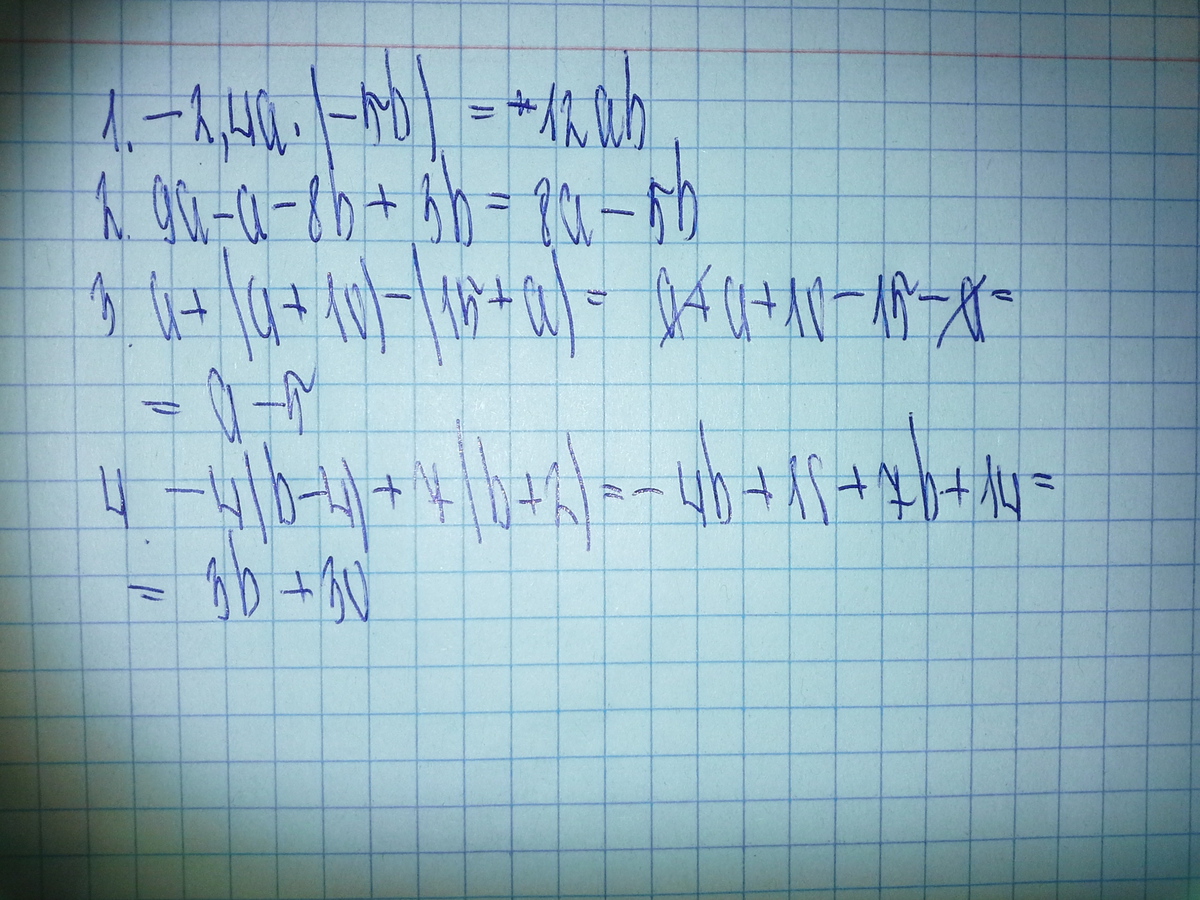 1. -2,4a·(-5b) = +12ab
2. 9a-a-8b+3b=8a-5b
3. a+(a+10)-(15+a)= a+a+10-15-a=
= a-5
4. -4(b-4)+7(b+2)=-4b+16+7b+14=
= 3b+30